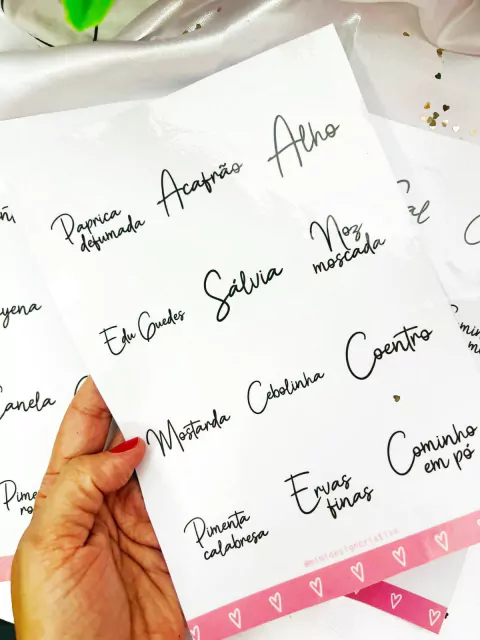 Paprica
defumada
Acafrão
Alho
Edu Guedes
Sálvia
Noz
moscada
Mostarda
Cebolinha
Coentro
Pimenta
calabresa
Ervas
finas
Cominho
em pó
@mimidesigncriativo
Canela